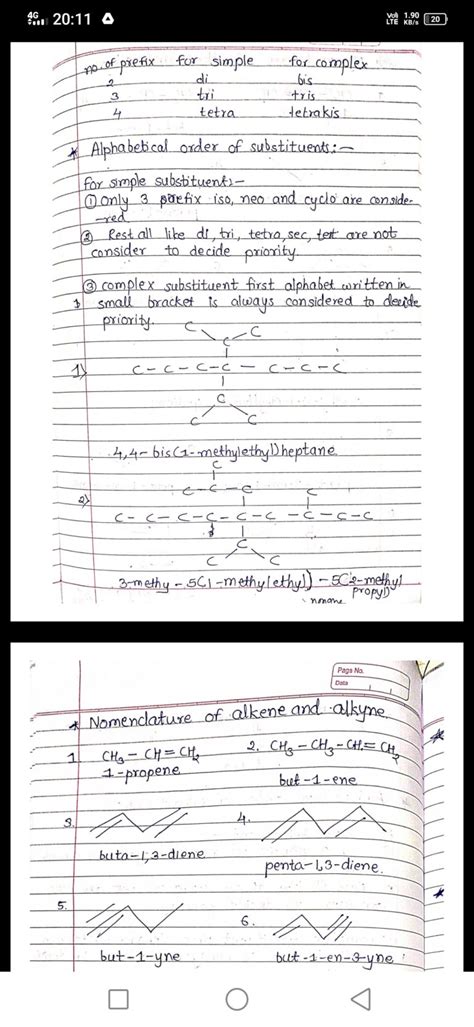 4G 20:11 Vo)) LTE 1.90 KB/s 20
no. of prefix for simple for complex
2 di bis
3 tri tris
4 tetra tetrakis
* Alphabetical order of substituents:-
for simple substituents:-
① Only 3 prefix iso, neo and cyclo are conside-
-red.
② Rest all like di, tri, tetra, sec, tert are not
consider to decide priority.
③ complex substituent first alphabet written in
small bracket is always considered to decide
priority.
C C
C
1) C-C-C-C-C-C-C
C
C C
4,4-bis(1-methylethyl)heptane
C
2) C-C-C C
C-C-C-C-C-C-C-C-C
C
C C
3-methy-5(1-methylethyl)-5(2-methyl
propyl)
nonane
Page No.
Date
* Nomenclature of alkene and alkyne
1 CH3-CH=CH2 2. CH3-CH2-CH=CH2
1-propene
but-1-ene
3. 4.
buta-1,3-diene
penta-1,3-diene.
5. 6.
but-1-yne but-1-en-3-yne